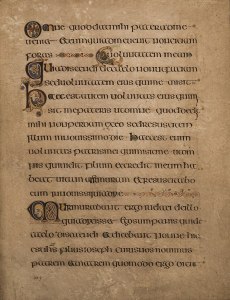 Omne quod dat mihi pater ad me
ueniet et eum qui uenit ad me non eiciam
foras uoluntatem meam
Quia discendi de caelo non ut faciam
sed uoluntatem eius qui me misit
haec est autem uoluntas eius qui mi
sit me patris ut omne quod dedit
mihi non perdam ex eo sed resuscitem
illum in nouissimo die haec est enim
uoluntas patris mei qui misit me ut om
nis qui uidit filium et credit in eum ha
beat uitam aeternam et resuscitabo
eum in nouissimo die
Murmurabant ergo iudaei de illo
quia dixisset ego sum panis qui de
caelo discendi et dicebant nonne hic
est ihs filius ioseph cuius nos nouimus
patrem et matrem quomodo ergo dicit